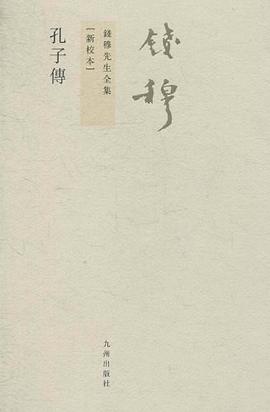 錢穆
錢穆先生全集
[新校本]
孔子傳
九州出版社